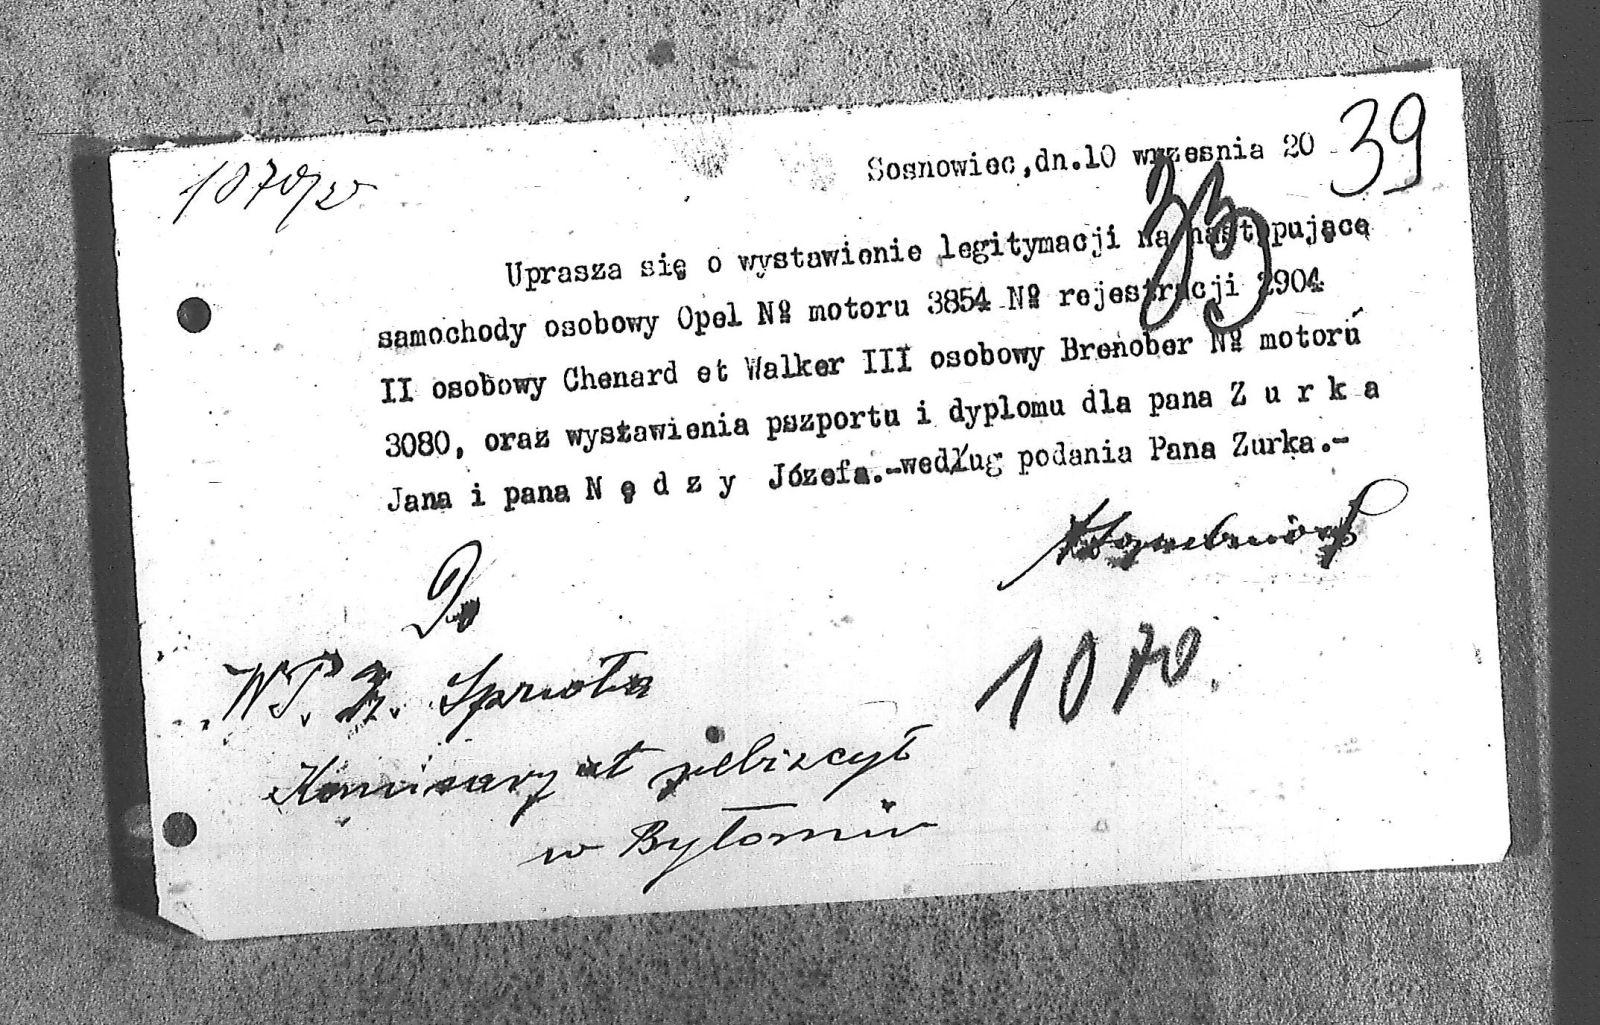 39
1070/20
Sosnowiec,dn.10 wrzesnia 20
33
Uprasza się o wystawienie legitymacji na następującę
samochody osobowy Opel № motoru 3854 № rejestracji 2904
II osobowy Chenard et Walker III osobowy Brenober № motoru
3080, oraz wystawienia pszportu i dyplomu dla pana Z u r k a
Jana i pana N ę d z y Józefa.-według podania Pana Zurka.-
Do
W.P.
Komisaryat plebiscyt
w Bytomiu
1070.